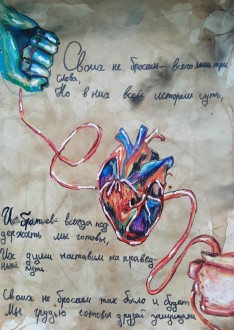 Своих не бросаем - всего лишь три
слова,
Но в них всей истории суть,
И братьев всегда под
держать мы готовы,
Их души наставим на правед-
ный путь
Своих не бросаем так было и будет
Мы грудью готовы друзей защищать